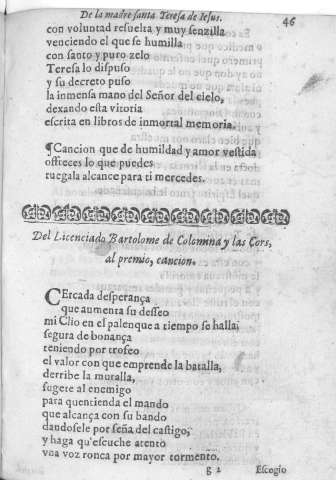 De la madre santa Teresa de Iesus. 46
con voluntad resuelta y muy senzilla
venciendo el que se humilla
con santo y puro zelo
Teresa lo dispuso
y su decreto puso
la inmensa mano del Señor del cielo,
dexando esta vitoria
escrita en libros de inmortal memoria.
¶Cancion que de humildad y amor vestida
ofreces lo que puedes
ruegala alcance para ti mercedes.
Del Licenciado Bartolome de Colomina y las Cors,
al premio, cancion.
CErcada desperança
que aumenta su desseo
mi Clio en el palenque a tiempo se halla;
segura de bonança
teniendo por trofeo
el valor con que emprende la batalla,
derribe la muralla,
sugete al enemigo
para quentienda el mando
que alcança con su bando
dandosele por seña del castigo;
y haga qu'escuche atento
vna voz ronca por mayor tormento.
g 2 Escogio